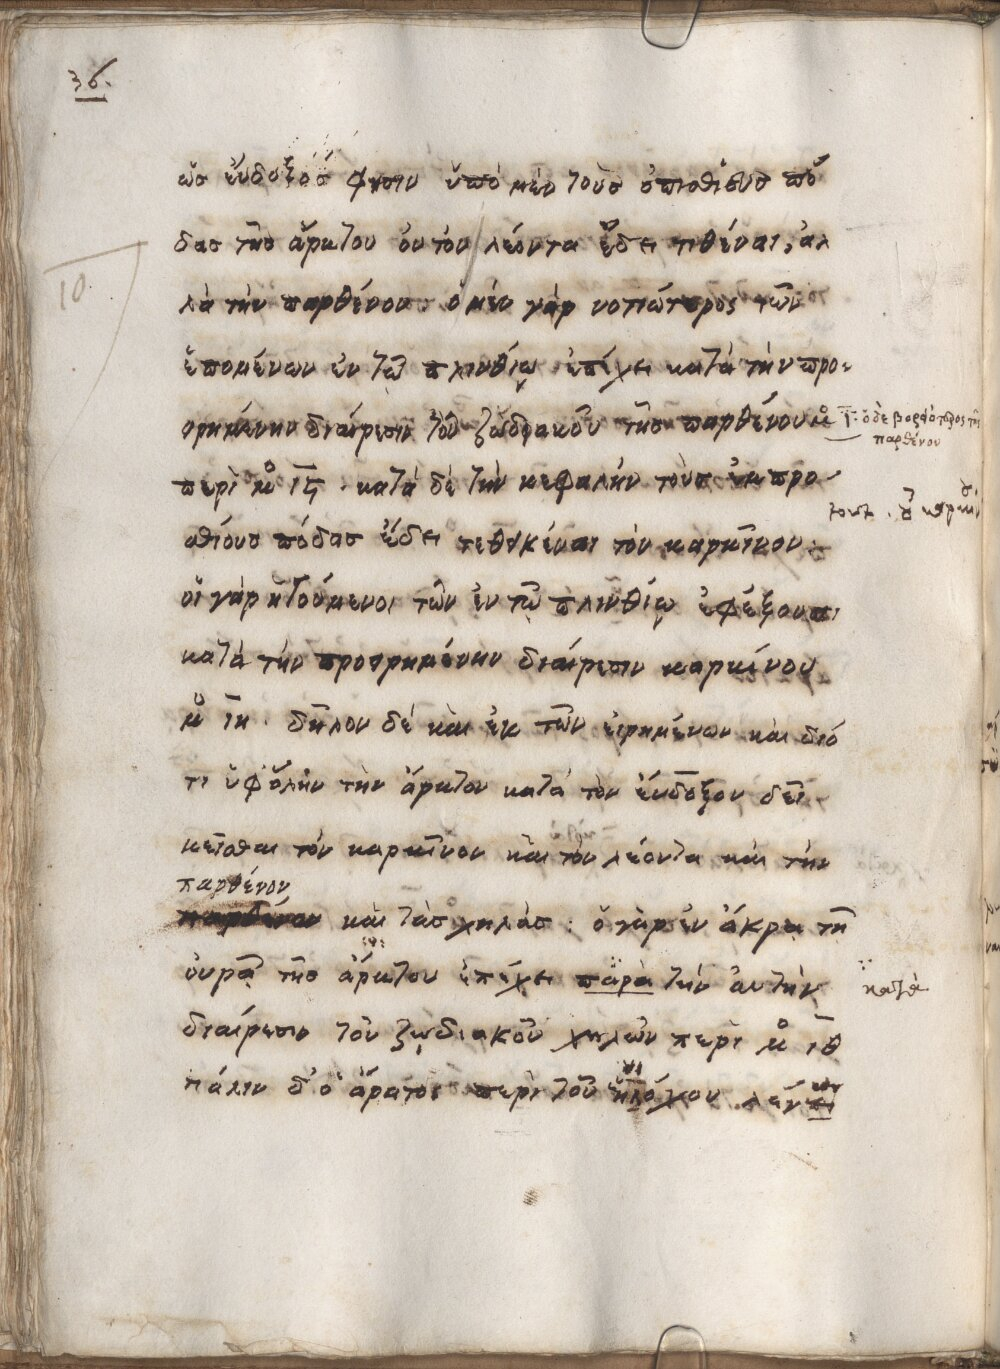 36.
10
ὡς ἔυδοξός φησιν ὑπὸ μὲν τοὺς ὀπισθίους πό
δας τῆς ἄρκτου ὀυ τὸν λέοντα ἔδει τιθέναι, ἀλ
λὰ τὴν παρθένον. ὁ μὲν γὰρ νοτιώτερος τῶν
ἑπομένων ἐν τῶ πλινθίῳ ἐπέχει κατὰ τὴν προ
ορημένην διαίρεσιν τοῦ ζωδιακοῦ τῆς παρθένου μ̊ γ̄· ὁ δὲ βορειότερος τῆς
παρθένου
περὶ μ̊ ιϛ̄ · κατὰ δὲ τὴν κεφαλὴν τοὺς ἐμπρο
σθίους πόδας ἔδει τεθηκέναι τὸν καρκῖνον
οἱ γὰρ ἡγούμενοι τῶν ἐν τῶ πλινθίῳ ἐφέξουσι
κατὰ τὴν προορημένην διαίρεσιν καρκίνου
μ̊ ῑη · δῆλον δὲ καὶ ἐκ τῶν ἐιρημένων καὶ διό
τι ὑφ' ὅλην τὴν ἄρκτον κατὰ τὸν ἔυδοξον δεῖ
κεῖσθαι τὸν καρκῖνον καὶ τὸν λέοντα καὶ τὴν
παρθένον
παρθένον καὶ τὰς χηλάς : ὁ γὰρ ἐν ἄκρᾳ τῆ
ὀυρᾷ τῆς ἄρκτου ἐπέχει παρὰ τὴν ἀυτὴν κατὰ
διαίρεσιν τοῦ ζῳδιακοῦ χηλῶν περὶ μ̊ ῑθ
πάλιν δ' ὁ ἄρατος περὶ τοῦ ἡνιόχου λέγει